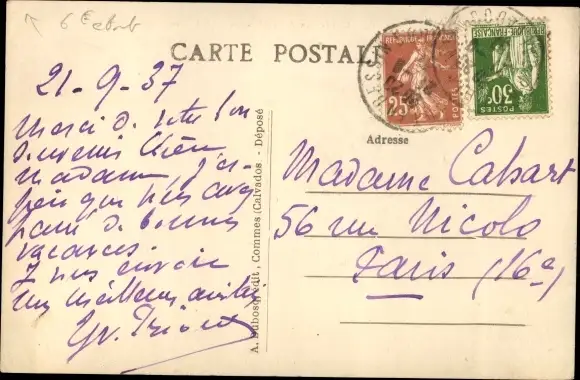 CARTE POSTALE
21-9-37
Merci de votre bon
souvenir chère
madame, j'es-
père que vous avez
passé de bonnes
vacances.
Je vous envoie
mes meilleures amitiés
A. Dubosq, édit, Commes (Calvados - Déposé
Adresse
Madame Cabart
56 rue Nicolo
Paris (16e)
REPUBLIQUE FRANÇAISE
25c
POSTES
REPUBLIQUE FRANÇAISE
30c
POSTES